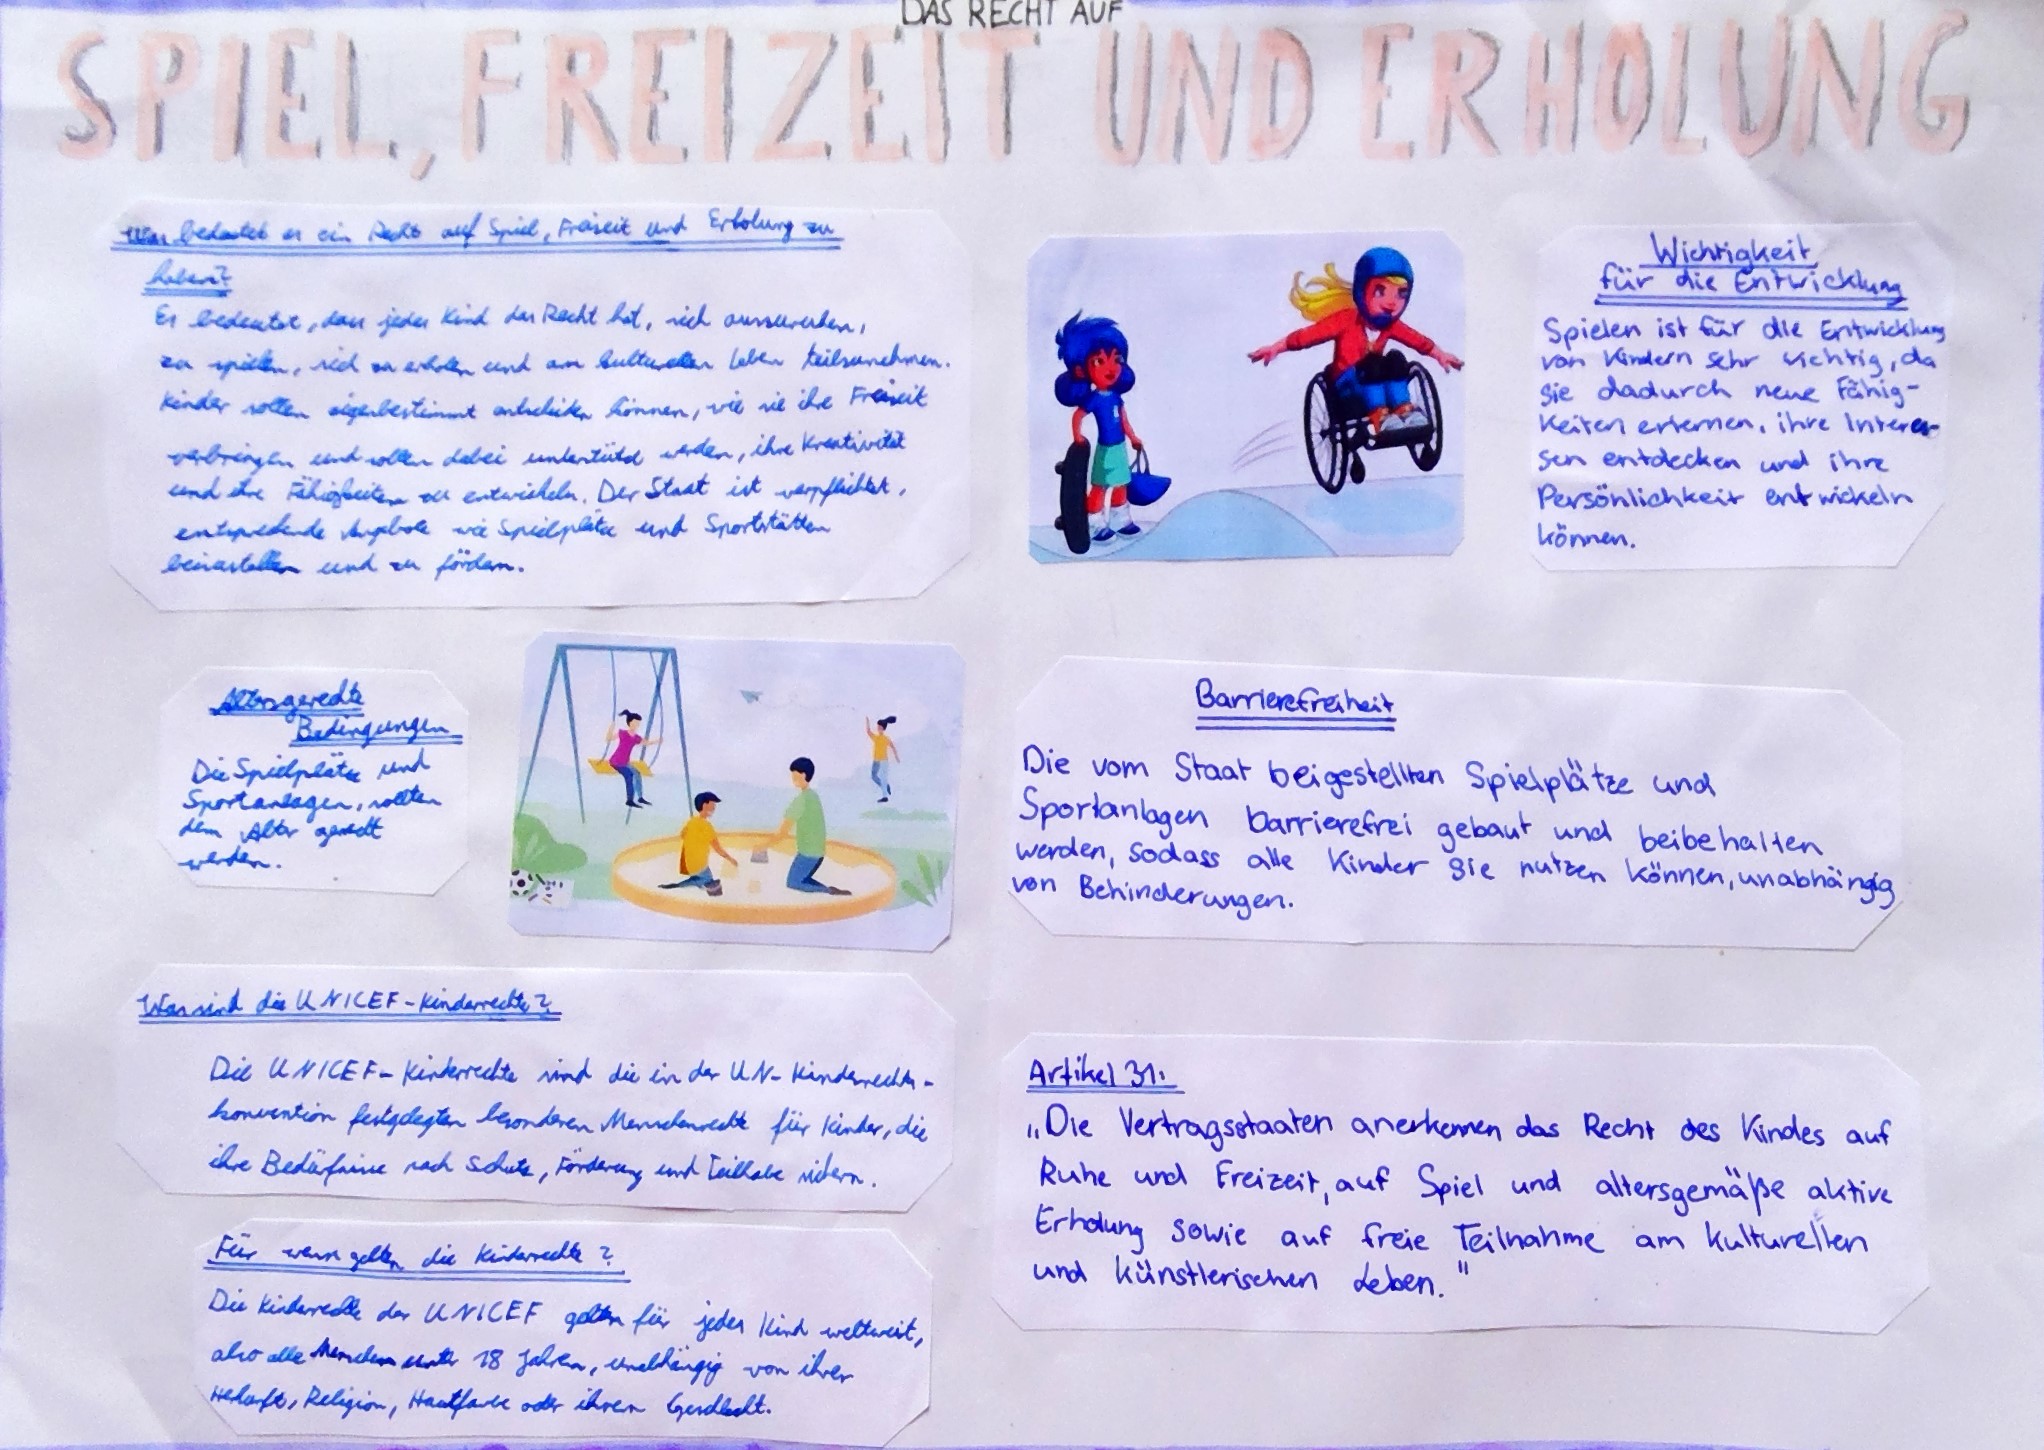 DAS RECHT AUF
SPIEL, FREIZEIT UND ERHOLUNG
Was bedeutet es ein Recht auf Spiel, Freizeit und Erholung zu
haben?
Es bedeutet, dass jedes Kind das Recht hat, sich auszuruhen,
zu spielen, sich zu erholen und am kulturellen Leben teilzunehmen.
Kinder sollen eigenbestimmt entscheiden können, wie sie ihre Freizeit
verbringen und sollen dabei unterstützt werden, ihre Kreativität
und ihre Fähigkeiten zu entwickeln. Der Staat ist verpflichtet,
entsprechende Angebote wie Spielplätze und Sportstätten
bereitzustellen und zu fördern.
Wichtigkeit
für die Entwicklung
Spielen ist für die Entwicklung
von Kindern sehr wichtig, da
sie dadurch neue Fähig-
keiten erlernen, ihre Interes-
sen entdecken und ihre
Persönlichkeit entwickeln
können.
Altersgerechte
Bedingungen
Die Spielplätze und
Sportanlagen, sollten
dem Alter gerecht
werden.
Barrierefreiheit
Die vom Staat beigestellten Spielplätze und
Sportanlagen barrierefrei gebaut und beibehalten
werden, sodass alle Kinder sie nutzen können, unabhängig
von Behinderungen.
Was sind die UNICEF-Kinderrechte?
Die UNICEF-Kinderrechte sind die in der UN-Kinderrechts-
konvention festgelegten besonderen Menschenrechte für Kinder, die
ihre Bedürfnisse nach Schutz, Förderung und Teilhabe sichern.
Für wenn gelten die Kinderrechte?
Die Kinderrechte der UNICEF gelten für jedes Kind weltweit,
also alle Menschen unter 18 Jahren, unabhängig von ihrer
Herkunft, Religion, Hautfarbe oder ihrem Geschlecht.
Artikel 31:
„Die Vertragsstaaten anerkennen das Recht des Kindes auf
Ruhe und Freizeit, auf Spiel und altersgemäße aktive
Erholung sowie auf freie Teilnahme am kulturellen
und künstlerischen Leben."